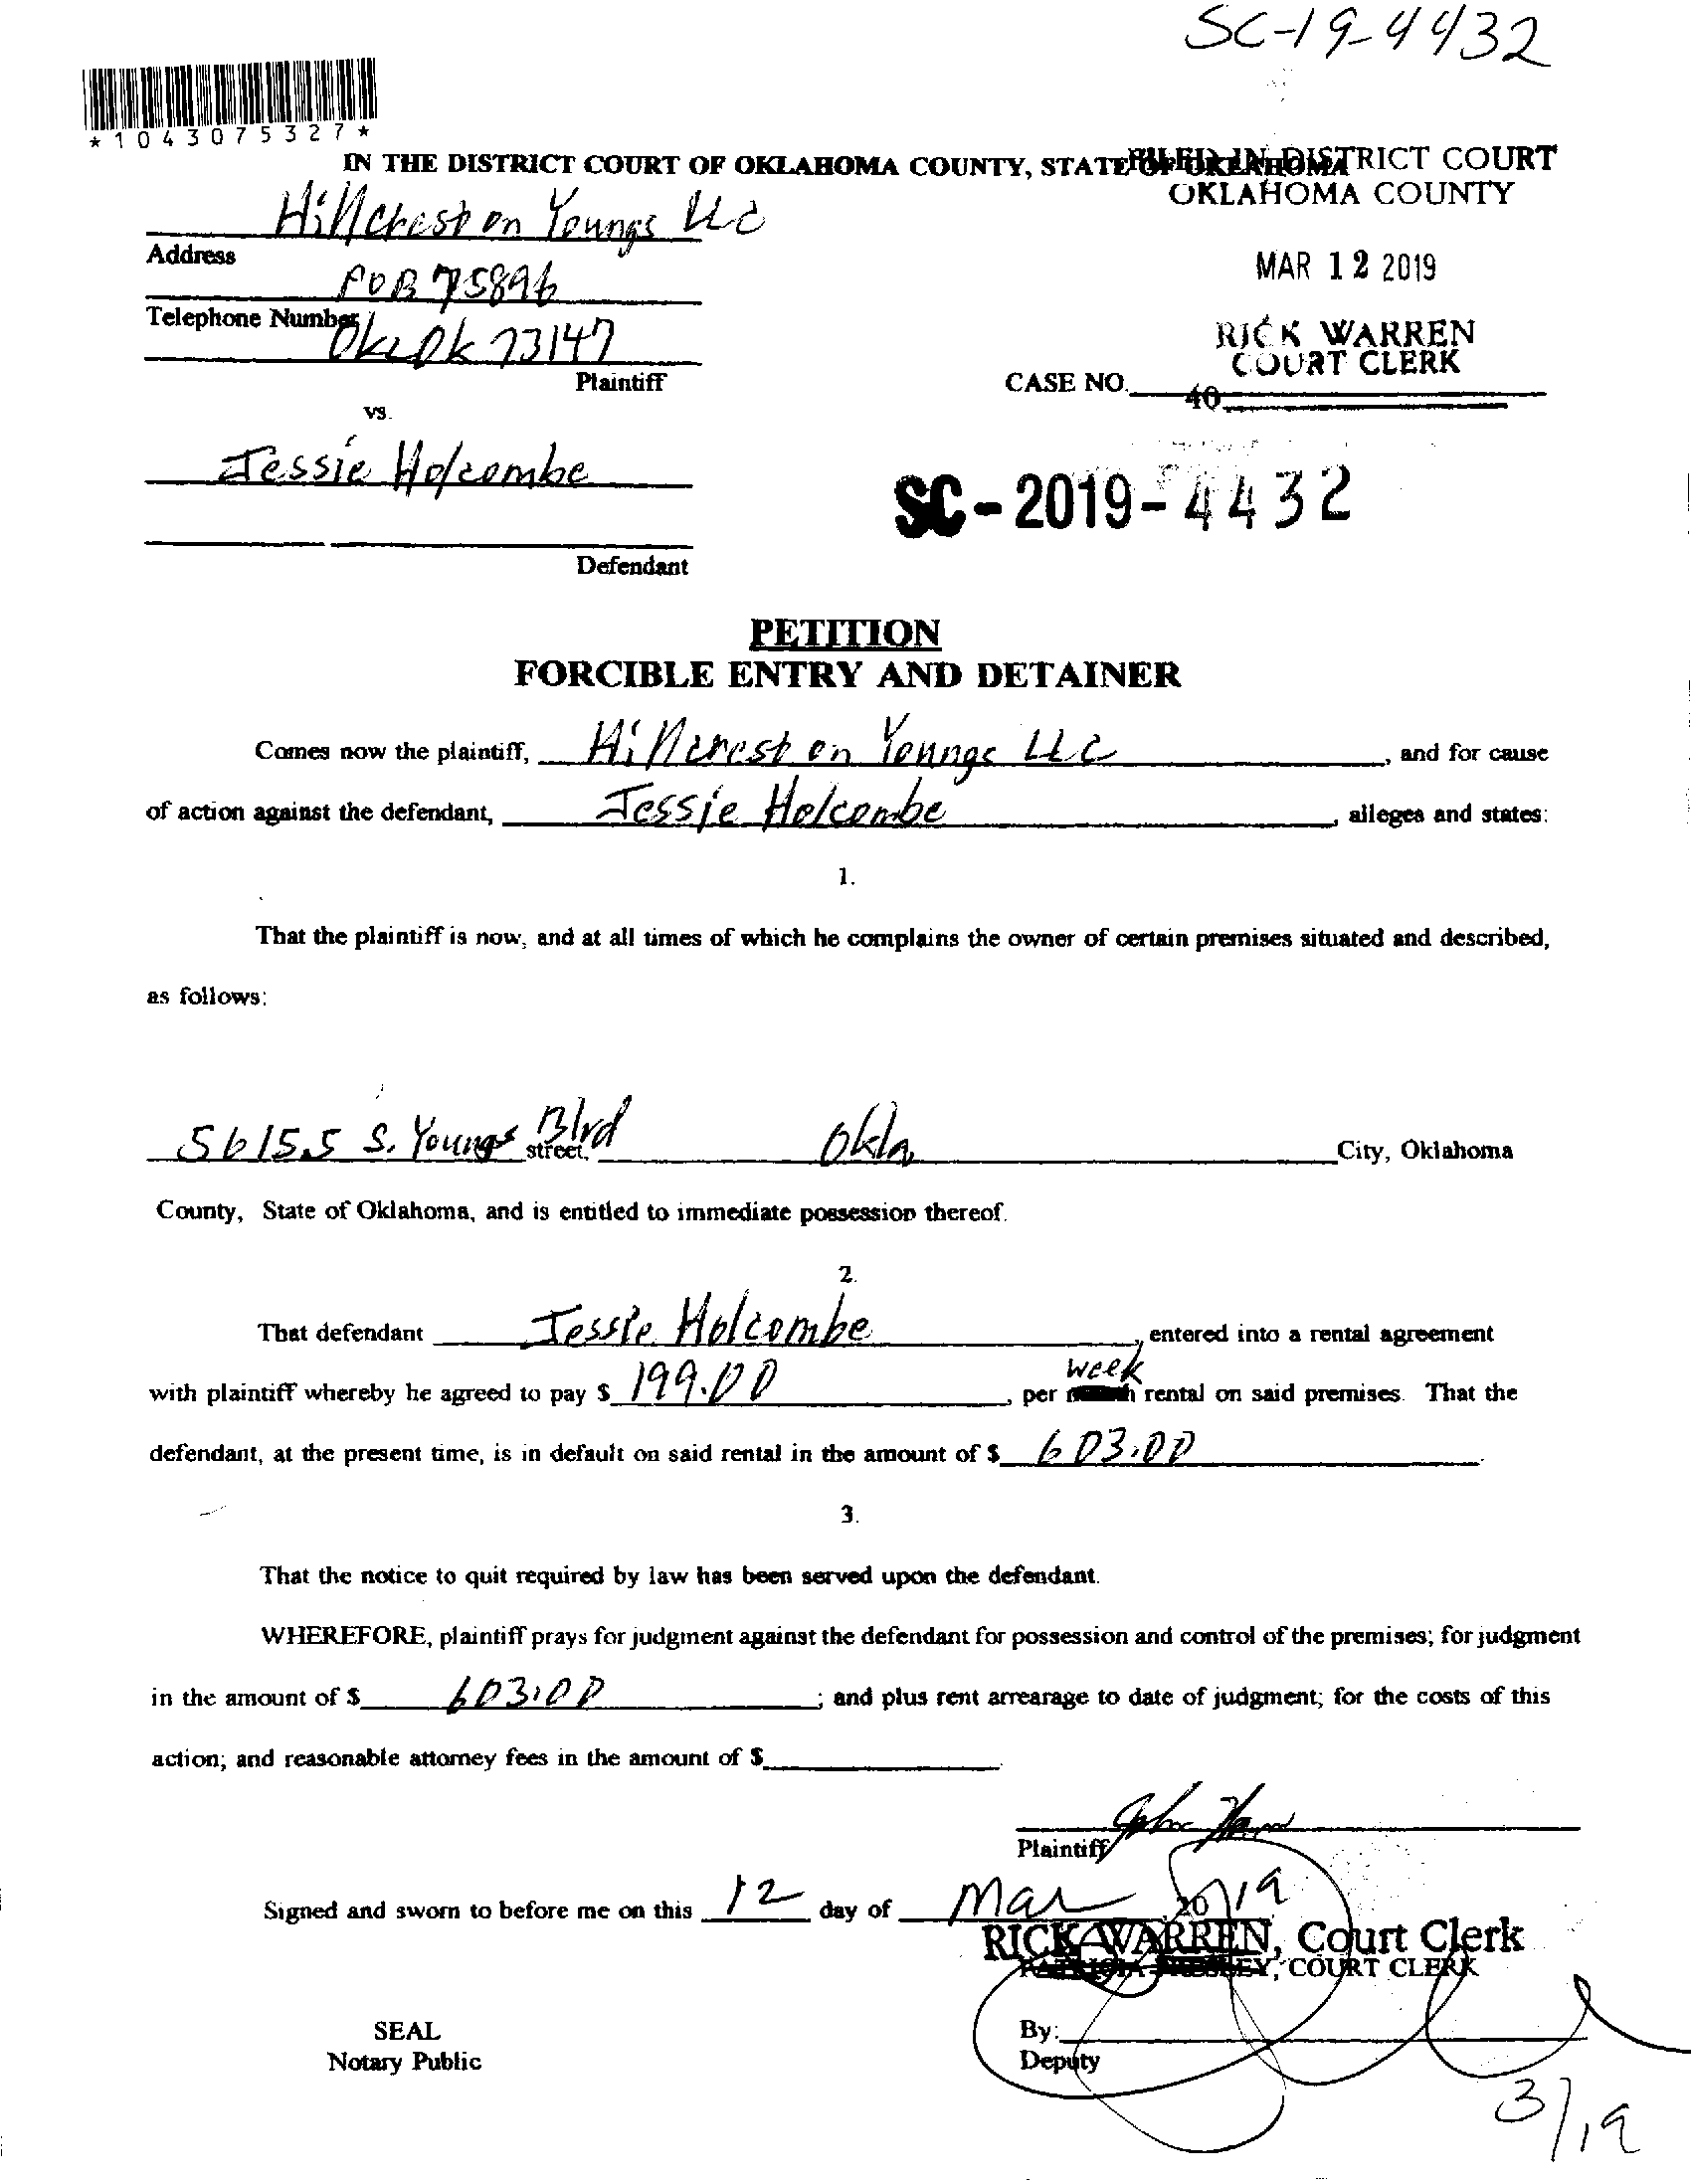 SC-19-4432
*1043075327*
IN THE DISTRICT COURT OF OKLAHOMA COUNTY, STATE OF OKLAHOMA
FILED IN DISTRICT COURT
OKLAHOMA COUNTY
Hillcrest on Youngs LLC
Address
MAR 12 2019
POB 75896
Telephone Number
RICK WARREN
COURT CLERK
Okc Ok 73147
Plaintiff
CASE NO.
40
vs.
Jessie Holcombe
SC-2019-4432
Defendant
PETITION
FORCIBLE ENTRY AND DETAINER
Comes now the plaintiff, Hillcrest on Youngs LLC, and for cause
of action against the defendant, Jessie Holcombe, alleges and states:
1.
That the plaintiff is now, and at all times of which he complains the owner of certain premises situated and described,
as follows:
5615.5 S. Youngs Blvd street, Okla City, Oklahoma
County, State of Oklahoma, and is entitled to immediate possession thereof.
2.
That defendant Jessie Holcombe, entered into a rental agreement
with plaintiff whereby he agreed to pay $ 199.00, per week rental on said premises. That the
defendant, at the present time, is in default on said rental in the amount of $ 603.00.
3.
That the notice to quit required by law has been served upon the defendant.
WHEREFORE, plaintiff prays for judgment against the defendant for possession and control of the premises; for judgment
in the amount of $ 603.00; and plus rent arrearage to date of judgment; for the costs of this
action; and reasonable attorney fees in the amount of $
Plaintiff
Signed and sworn to before me on this 12 day of Mar, 2019
RICK WARREN, Court Clerk
COURT CLERK
SEAL
By:
Notary Public
Deputy
3/19